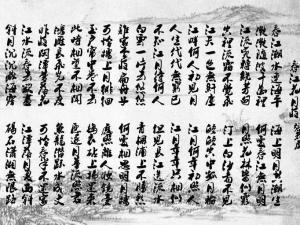 春江花月夜
春江潮水連海平 海上明月共潮生
灩灩隨波千萬里 何處春江無月明
江流宛轉繞芳甸 月照花林皆似霰
空里流霜不覺飛 汀上白沙看不見
江天一色無纖塵 皎皎空中孤月輪
江畔何人初見月 江月何年初照人
人生代代無窮已 江月年年只相似
不知江月待何人 但見長江送流水
白雲一片去悠悠 青楓浦上不勝愁
誰家今夜扁舟子 何處相思明月樓
可憐樓上月徘徊 應照離人妝鏡臺
玉戶簾中卷不去 搗衣砧上拂還來
此時相望不相聞 願逐月華流照君
鴻雁長飛光不度 魚龍潛躍水成文
昨夜閒潭夢落花 可憐春半不還家
江水流春去欲盡 江潭落月復西斜
斜月沉沉藏海霧 碣石瀟湘無限路